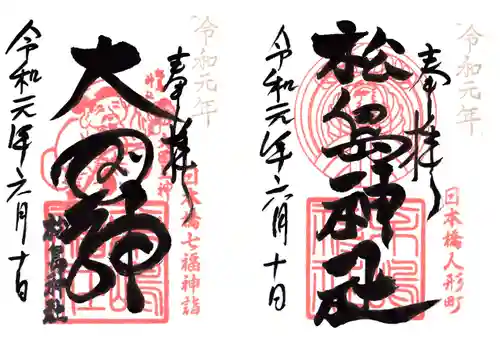 令和元年
奉拝
松島神社
令和元年六月十日
日本橋人形町
令和元年
奉拝
大国神
令和元年六月十日
日本橋七福神詣
松島神社